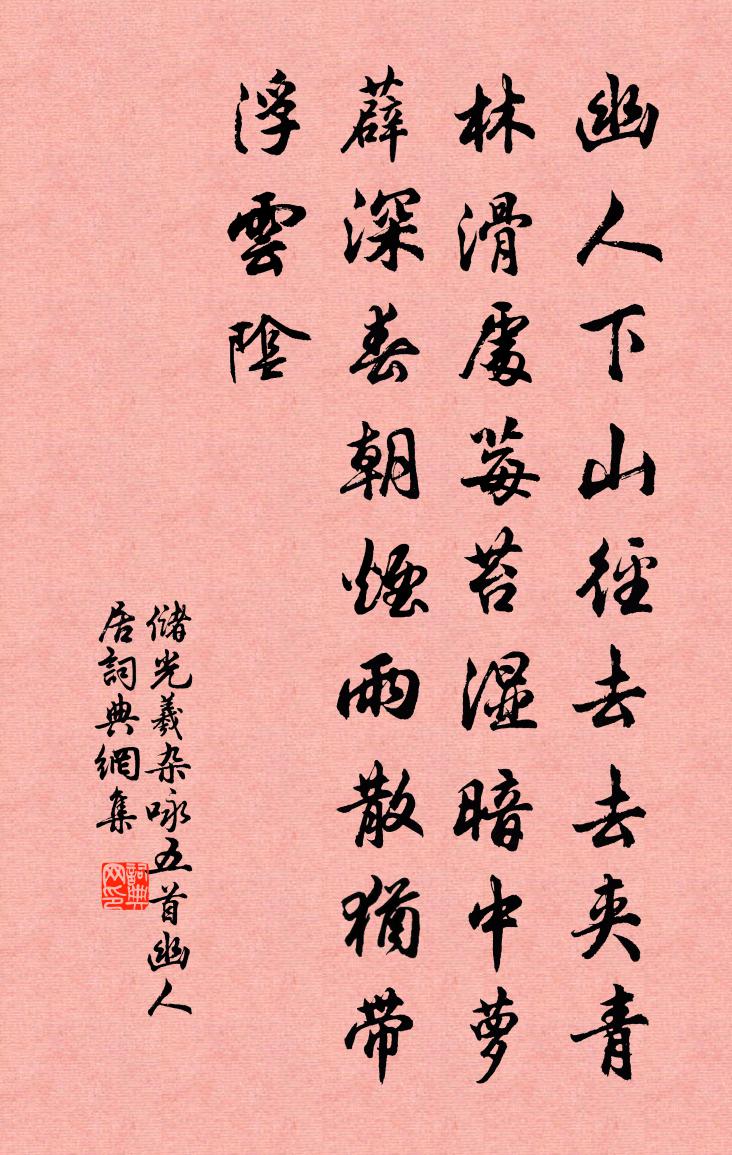 幽人下山徑去去夾青
林滑處莓苔濕暗中蘿
薜深春朝煙雨散猶帶
浮雲陰
儲光羲杂咏五首幽人
居詞典網集
詞典网印